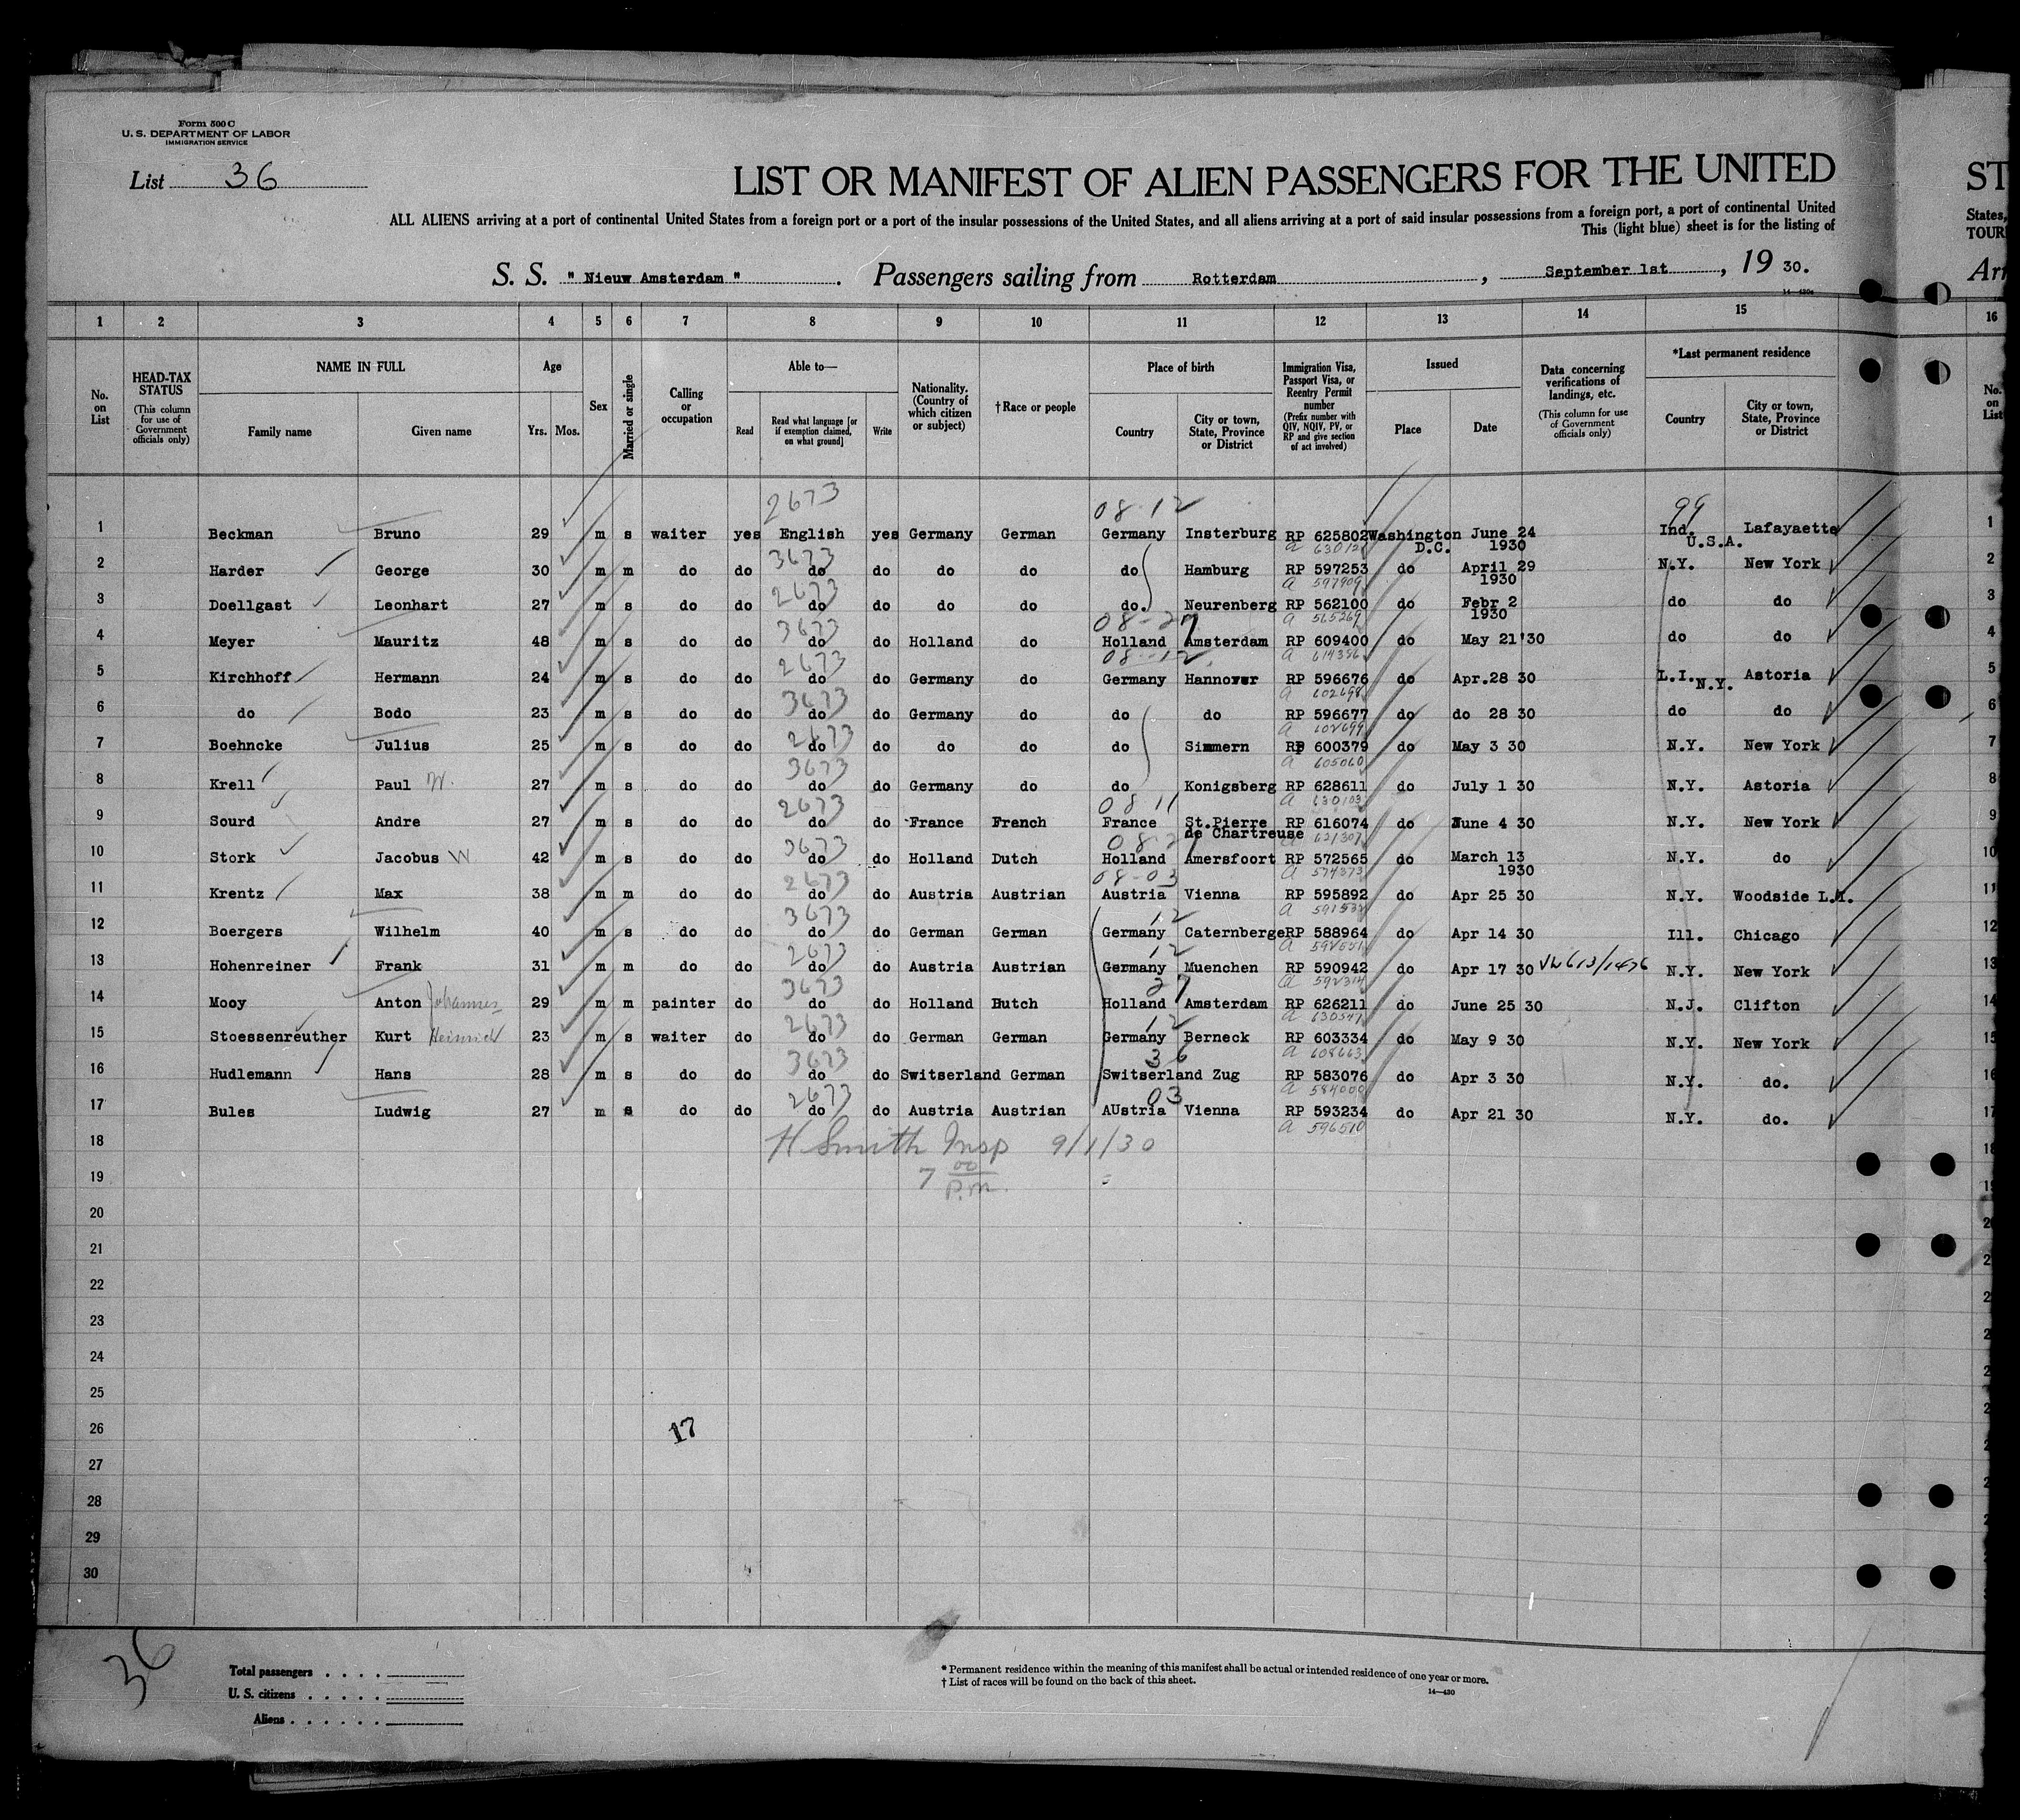 Form 500 C
U. S. DEPARTMENT OF LABOR
IMMIGRATION SERVICE
List 36
LIST OR MANIFEST OF ALIEN PASSENGERS FOR THE UNITED
ST
ALL ALIENS arriving at a port of continental United States from a foreign port or a port of the insular possessions of the United States, and all aliens arriving at a port of said insular possessions from a foreign port, a port of continental United
States,
This (light blue) sheet is for the listing of
TOUR
S. S. " Nieuw Amsterdam " . Passengers sailing from Rotterdam , September 1st , 19 30.
Arr
1 2 3 4 5 6 7 8 9 10 11 12 13 14 15 16
No. on List
HEAD-TAX STATUS (This column for use of Government officials only)
NAME IN FULL
Family name Given name
Age
Yrs. Mos.
Sex
Married or single
Calling or occupation
Able to—
Read Read what language [or if exemption claimed, on what ground] Write
Nationality. (Country of which citizen or subject)
†Race or people
Place of birth
Country City or town, State, Province or District
Immigration Visa, Passport Visa, or Reentry Permit number (Prefix number with QIV, NQIV, PV, or RP and give section of act involved)
Issued
Place Date
Data concerning verifications of landings, etc. (This column for use of Government officials only)
*Last permanent residence
Country City or town, State, Province or District
No. on List
2673 08-12 99
1 Beckman Bruno 29 m s waiter yes English yes Germany German Germany Insterburg RP 625802 Washington D.C. June 24 1930 Ind. U.S.A. Lafayaette 1
3673
2 Harder George 30 m m do do do do do do do Hamburg RP 597253 do April 29 1930 N.Y. New York 2
a 597909
2673
3 Doellgast Leonhart 27 m s do do do do do do do. Neurenberg RP 562100 do Febr 2 1930 do do 3
a 565269
3673 08-27
4 Meyer Mauritz 48 m s do do do do Holland do Holland Amsterdam RP 609400 do May 21'30 do do 4
a 614356
2673 08-12
5 Kirchhoff Hermann 24 m s do do do do Germany do Germany Hannover RP 596676 do Apr.28 30 L.I. N.Y. Astoria 5
a 602698
3673
6 do Bodo 23 m s do do do do Germany do do do RP 596677 do do 28 30 do do 6
a 602699
2673
7 Boehncke Julius 25 m s do do do do do do do Simmern RP 600379 do May 3 30 N.Y. New York 7
a 605060
3673
8 Krell Paul W. 27 m s do do do do Germany do do Konigsberg RP 628611 do July 1 30 N.Y. Astoria 8
a 630103
2673 08 11
9 Sourd Andre 27 m s do do do do France French France St.Pierre de Chartreuse RP 616074 do June 4 30 N.Y. New York 9
a 621307
3673 08-27
10 Stork Jacobus W 42 m s do do do do Holland Dutch Holland Amersfoort RP 572565 do March 13 1930 N.Y. do 10
a 574373
2673 08-03
11 Krentz Max 38 m m do do do do Austria Austrian Austria Vienna RP 595892 do Apr 25 30 N.Y. Woodside L.I. 11
3673 12
12 Boergers Wilhelm 40 m s do do do do German German Germany Caternberge RP 588964 do Apr 14 30 Ill. Chicago 12
2673 12
13 Hohenreiner Frank 31 m m do do do do Austria Austrian Germany Muenchen RP 590942 do Apr 17 30 N.Y. New York 13
3673 27
14 Mooy Anton Johannes 29 m m painter do do do Holland Dutch Holland Amsterdam RP 626211 do June 25 30 N.J. Clifton 14
a 630547
2673 12
15 Stoessenreuther Kurt Heinrich 23 m s waiter do do do German German Germany Berneck RP 603334 do May 9 30 N.Y. New York 15
a 608663
3673 36
16 Hudlemann Hans 28 m s do do do do Switserland German Switserland Zug RP 583076 do Apr 3 30 N.Y. do. 16
a 584000
2673 03
17 Bules Ludwig 27 m s do do do do Austria Austrian AUstria Vienna RP 593234 do Apr 21 30 N.Y. do. 17
a 596510
18 H Smith Insp 9/1/30 18
19 7 00 P.M.
20
21
22
23
24
25
26 17
27
28
29
30
36
Total passengers
U. S. citizens
Aliens
* Permanent residence within the meaning of this manifest shall be actual or intended residence of one year or more.
† List of races will be found on the back of this sheet.
14—430